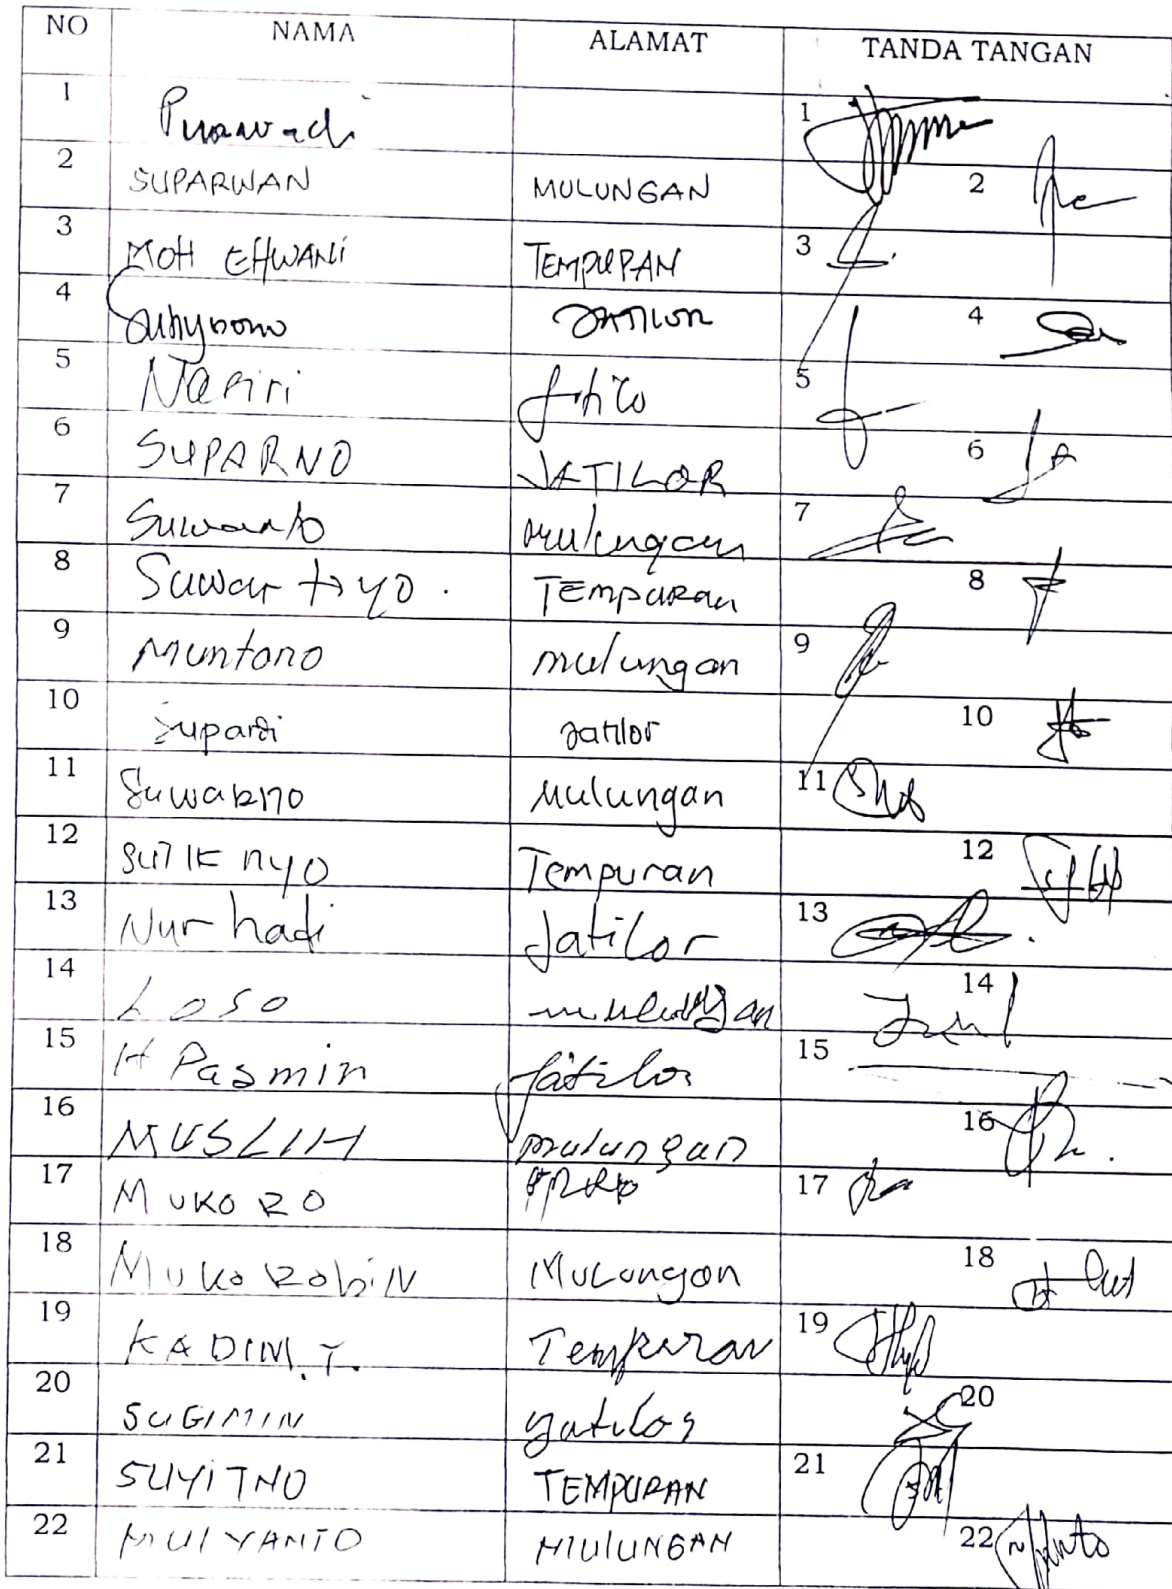 NO NAMA ALAMAT TANDA TANGAN
1 Purwadi 1
2 SUPARWAN MULUNGAN 2
3 MOH EHWANI TEMPURAN 3
4 JATILOR 4
5 Nasiri 5
6 SUPARNO JATILOR 6
7 Suwanto mulungan 7
8 Suwartoyo. TEMPURan 8
9 Muntono mulungan 9
10 Supardi Jatilor 10
11 Suwarno Mulungan 11
12 Tempuran 12
13 Nurhadi Jatilor 13
14 LOSO 14
15 H Pasmin Jatilor 15
16 MUSLIH mulungan 16
17 MUKORO 17
18 MUKOROBIN Mulungan 18
19 KADIM.T. Tempuran 19
20 SUGIMIN yatilor 20
21 SUYITNO TEMPURAN 21
22 MULYANTO MULUNGAN 22